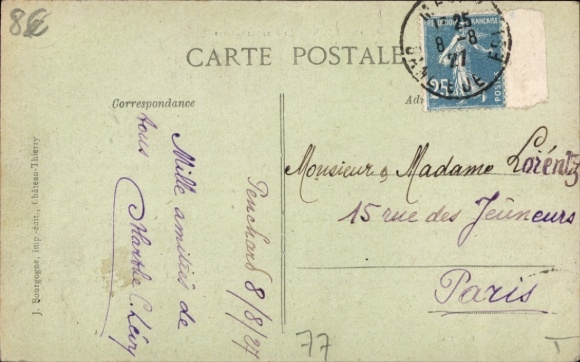 8€
CARTE POSTALE
Correspondance
RÉPUBLIQUE FRANÇAISE
25
POSTES
8 -8
27
Penchard 8/8/27
Mille amitiés de
tous
Marthe C. Lévy
Monsieur & Madame Lorentz
15 rue des Jeûneurs
Paris
77
J. Bourgogne, imp.-édit., Château-Thierry